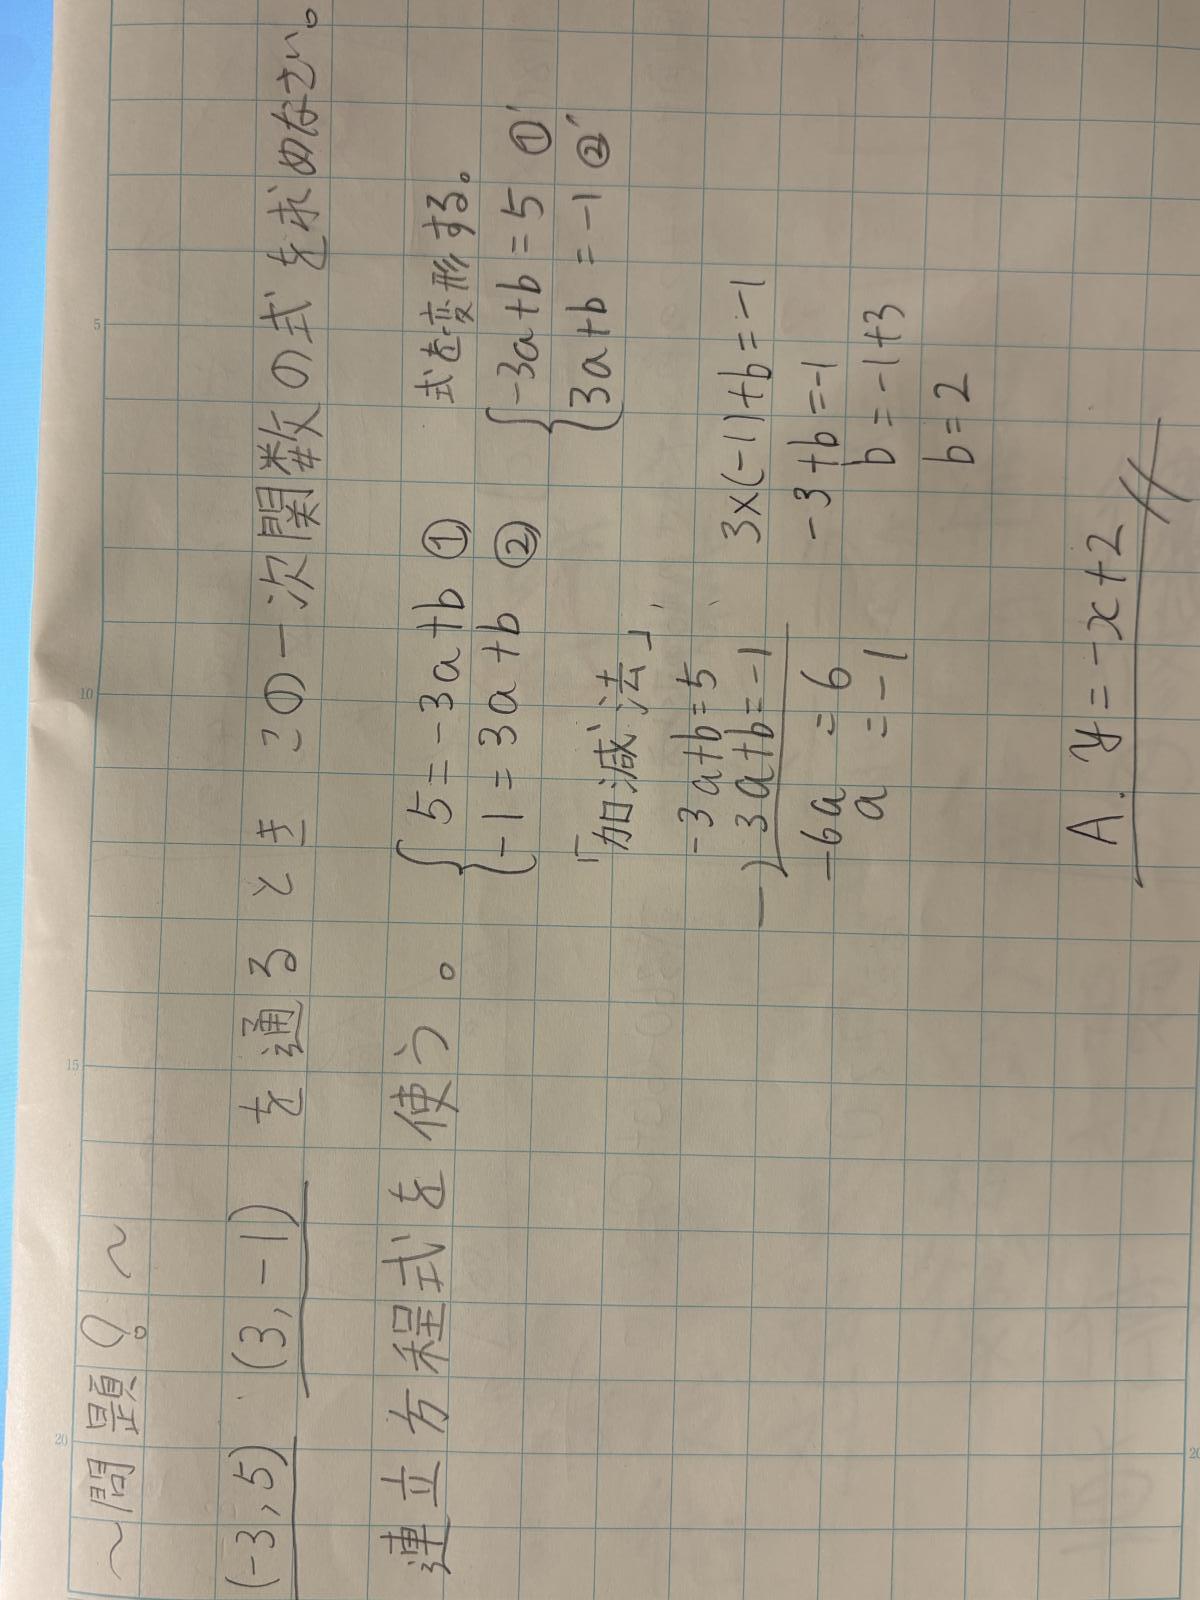 ~問題Q.~
(-3,5) (3,-1) を通るとき この一次関数の式を求めなさい。
連立方程式を使う。
{5=-3a+b ①
{-1=3a+b ②
式を変形する。
{-3a+b=5 ①'
{3a+b=-1 ②'
「加減法」
-3a+b=5
-) 3a+b=-1
-6a =6
a =-1
3×(-1)+b=-1
-3+b=-1
b=-1+3
b=2
A. y=-x+2
5
10
15
20
20